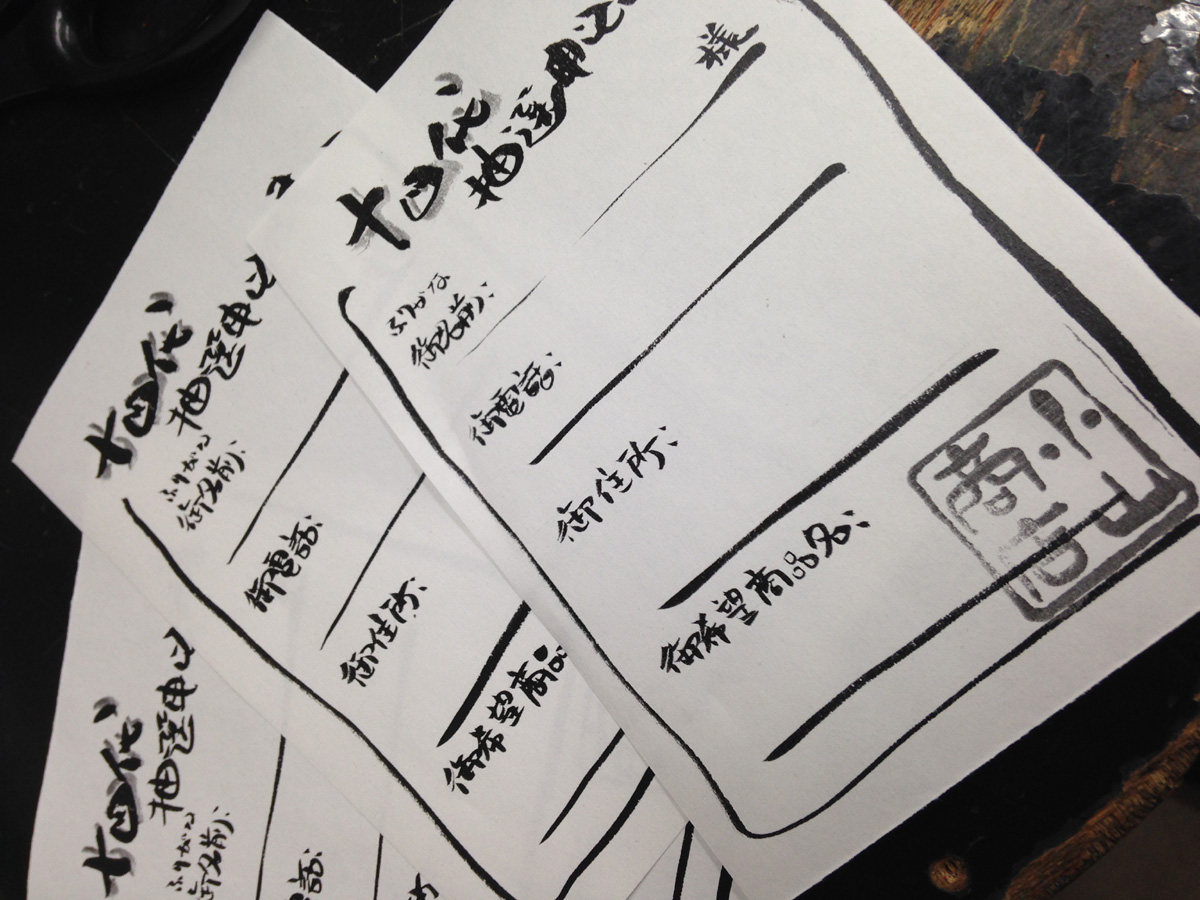 十四代
抽選申込
様
ふりがな
御名前:
御電話:
御住所:
御希望商品名:
小山
商店
十四代
抽選申込
ふりがな
御名前:
御電話:
御住所:
御希望商品
十四代
抽選申込
ふりがな
御名前:
話: